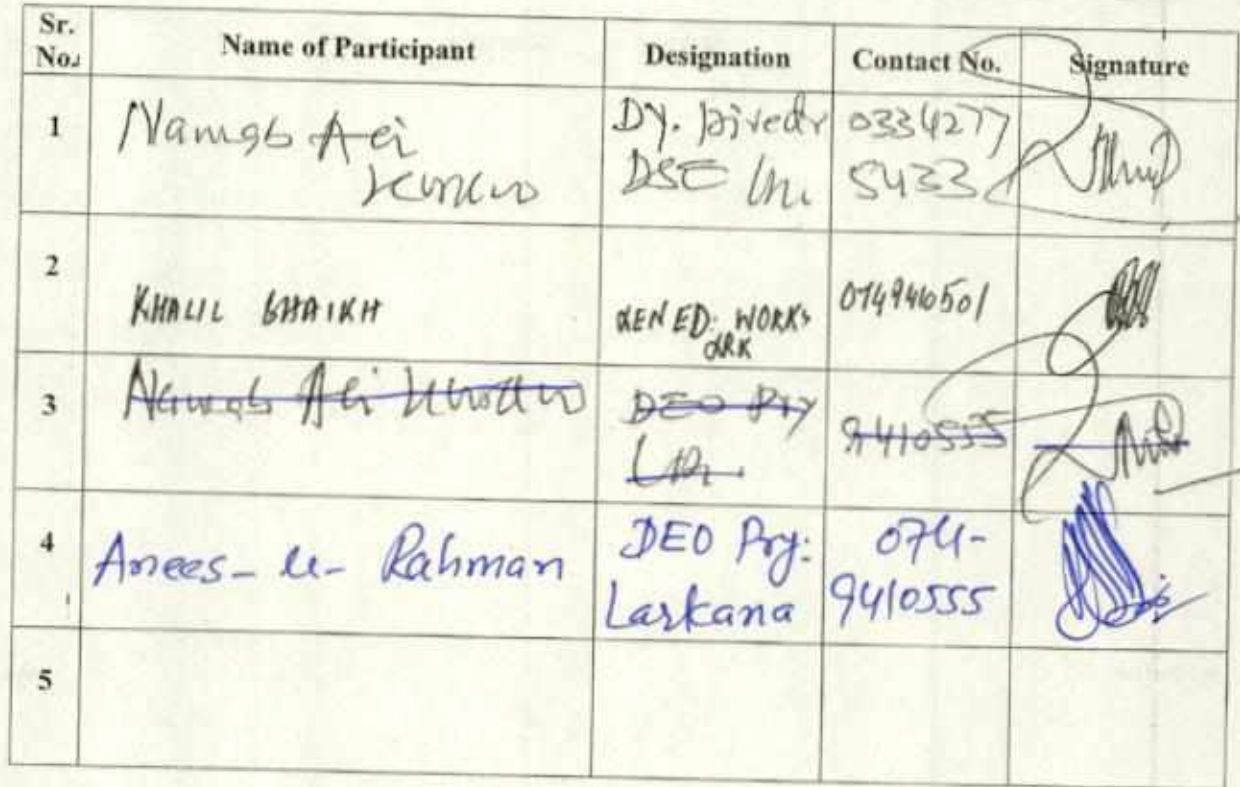 Sr. No. Name of Participant Designation Contact No. Signature
1 Nawab Ali Dy. Director 0334277
DSE 5433
2 KHALIL SHAIKH XEN ED: WORKS 0749410501
LRK
3 Nawab Ali DEO Pry 9410555
4 Anees-u-Rahman DEO Pry: 074-
Larkana 9410555
5